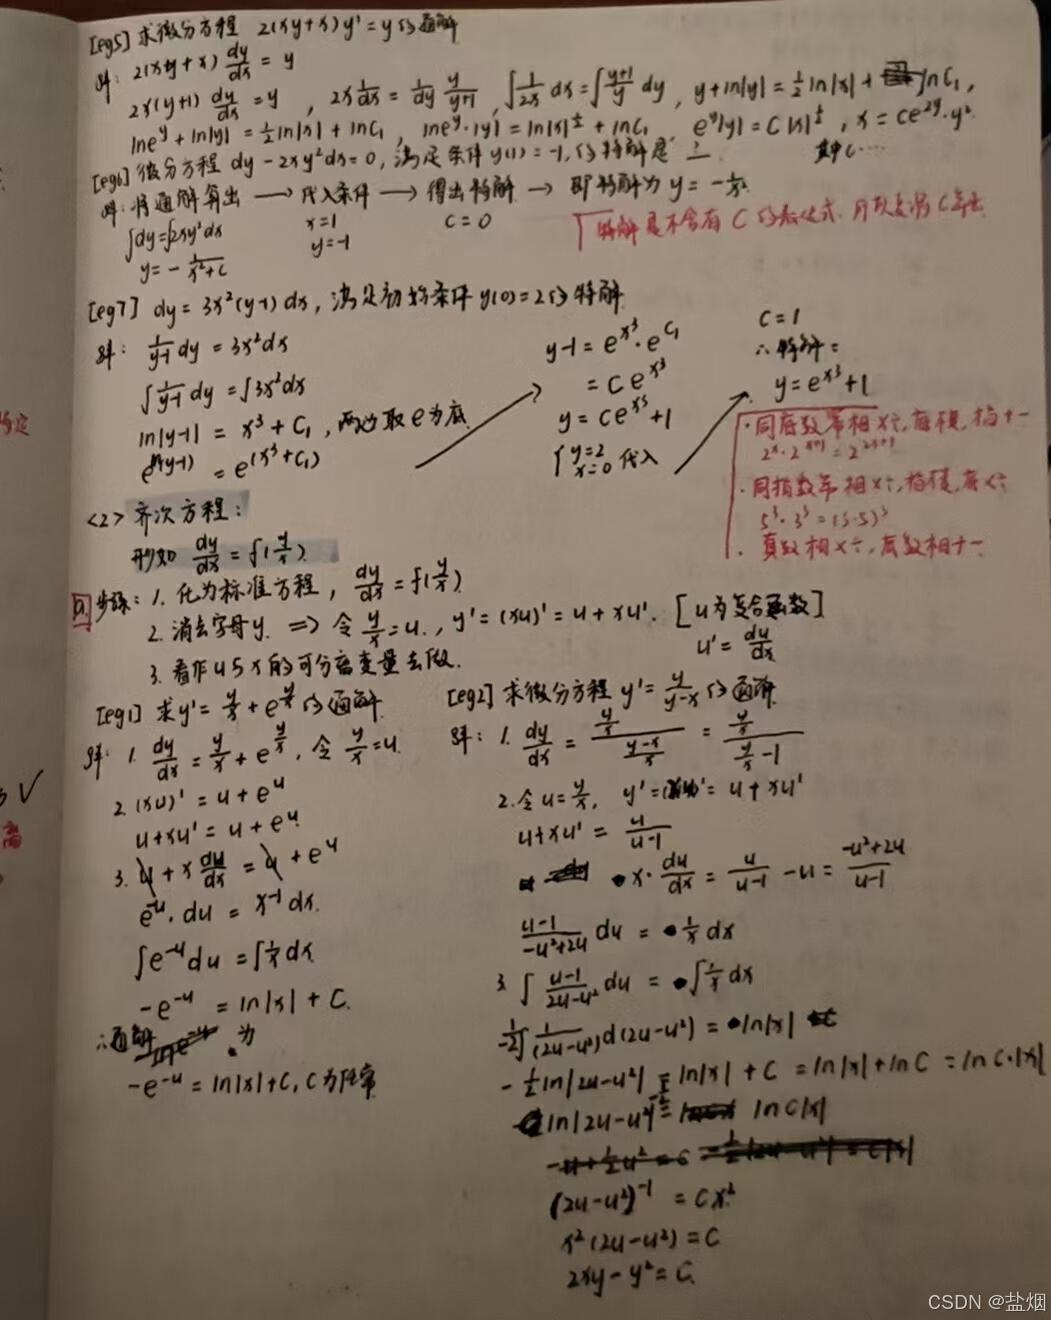 [eg5] 求微分方程 2(xy+x)y'=y的通解
解: 2(xy+x) dy/dx = y
2x(y+1) dy/dx = y , 2x 1/dx = 1/dy y/y+1 , ∫1/2x dx = ∫y+1/y dy , y+ln|y| = 1/2 ln|x| + lnC₁ ,
lne^y + ln|y| = 1/2 ln|x| + lnC₁ , lne^y·|y| = ln|x|^1/2 + lnC₁ , e^y|y| = C|x|^1/2 , x = ce^2y·y². 其中C……
[eg6] 微分方程 dy-2xy²dx=0, 满足条件 y(1)=-1, 的特解是
解: 将通解算出 → 代入条件 → 得出特解 → 即特解为 y = -1/x².
∫dy=∫2xy²dx x=1 C=0
y = -1/x²+C y=-1
特解是不含有C的表达式.
[eg7] dy = 3x²(y-1)dx, 满足初始条件 y(0)=2的特解
解: 1/y-1 dy = 3x²dx
∫1/y-1 dy = ∫3x²dx
ln|y-1| = x³+C₁, 两边取e为底
e^ln(y-1) = e^(x³+C₁)
y-1 = e^x³·e^C₁
= Ce^x³
y = Ce^x³+1
{y=2 x=0 代入
C=1
∴特解=
y = e^x³+1
·同底数幂相×÷, 底不变, 指+-
2^x·2^x+1 = 2^2x+1
·同指数幂相×÷, 指不变, 底×÷
5³·3³=(3·5)³
·真数相×÷, 底数相+-
<2> 齐次方程:
形如 dy/dx = f(y/x)
步骤: 1. 化为标准方程, dy/dx = f(y/x)
2. 消去字母y. ⇒ 令 y/x = u., y'=(xu)'=u+xu'. [u为复合函数]
u' = du/dx
3. 看作u与x的可分离变量去做.
[eg1] 求y'=y/x+e^y/x的通解
解: 1. dy/dx = y/x + e^y/x, 令 y/x = u.
2. (xu)' = u+e^u
u+xu' = u+e^u
3. u + x du/dx = u + e^u
e^-u·du = x^-1 dx.
∫e^-u du = ∫1/x dx
-e^-u = ln|x| + C.
∴通解 为
-e^-u = ln|x|+C, C为任常
[eg2] 求微分方程 y'=y/y-x的通解
解: 1. dy/dx = y/x / y-x/x = y/x / y/x-1
2. 令u=y/x, y'=(xu)'=u+xu'
u+xu' = u/u-1
x·du/dx = u/u-1 - u = -u²+2u/u-1
u-1/-u²+2u du = 1/x dx
3. ∫u-1/2u-u² du = ∫1/x dx
-1/2∫1/(2u-u²) d(2u-u²) = ln|x|
-1/2 ln|2u-u²| = ln|x| + C = ln|x|+lnC = lnC·|x|
ln|2u-u²|^-1/2 = lnC|x|
(2u-u²)^-1 = Cx²
x²(2u-u²)=C
2xy-y²=C.
CSDN @盐烟